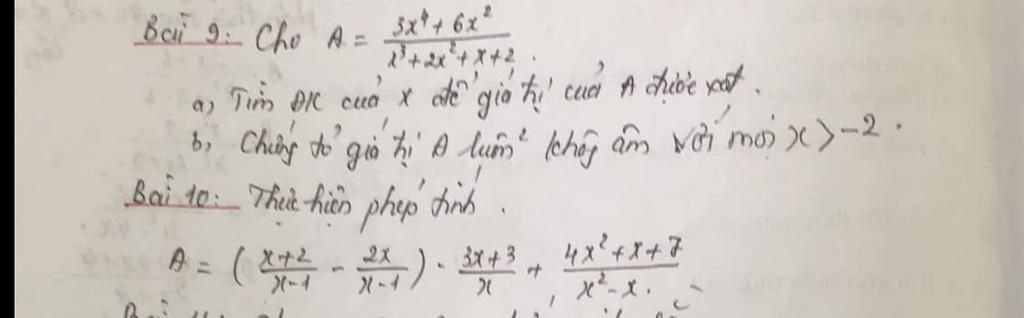 Bài 9: Cho A = (3x⁴ + 6x²)/(x³ + 2x² + x + 2).
a, Tìm ĐK của x để giá trị của A được xđ.
b, Chứng tỏ giá trị A luôn không âm với mọi x > -2.
Bài 10: Thực hiện phép tính.
A = ((x+2)/(x-1) - (2x)/(x-1)) . (3x+3)/x + (4x² + x + 7)/(x² - x).